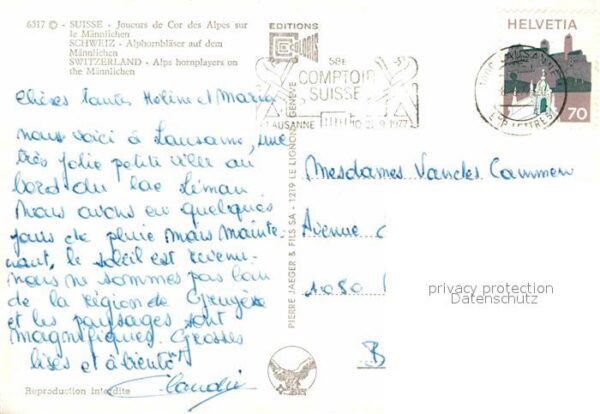 6517 © - SUISSE - Joueurs de Cor des Alpes sur
le Männlichen
SCHWEIZ - Alphornbläser auf dem
Männlichen
SWITZERLAND - Alps hornplayers on
the Männlichen
Chères tantes Hélène et Maria
nous voici à Lausanne, une
très jolie petite ville au
bord du lac Léman
Nous avons eu quelques
jours de pluie mais mainte-
nant, le soleil est revenu.
nous ne sommes pas loin
de la région de Gruyère
et les paysages sont
magnifiques. Grosses
bises et à bientôt
Claudie
Reproduction interdite
EDITIONS
PIERRE JAEGER & FILS SA - 1219 LE LIGNON - GENÈVE
58E
COMPTOIR
SUISSE
LAUSANNE 10-25.9.1977
HELVETIA
70
1000 LAUSANNE 1
EXP. LETTRES
Mesdames Vander Cammen
Avenue
1080
B
privacy protection
Datenschutz